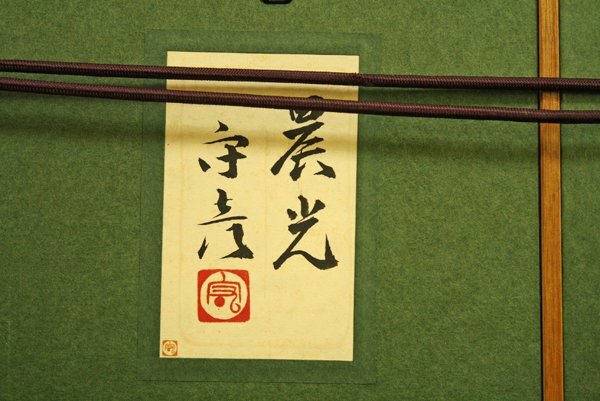 晨光
守彦